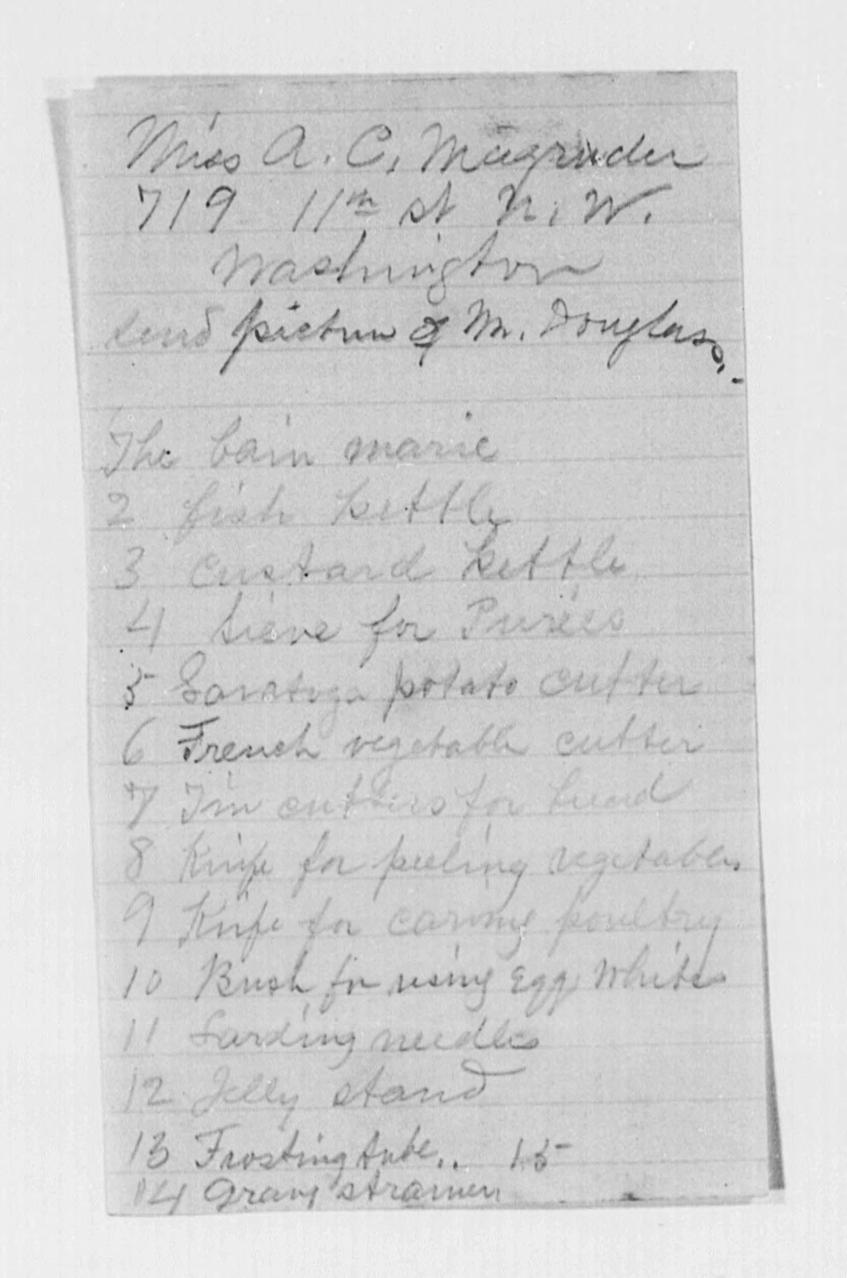 Miss A. C. Magruder
719 11th st N. W.
Washington
send picture of Mr. Douglass.
The bain marie
2 fish kettle
3 custard kettle
4 Sieve for Purees
5 Saratoga potato cutter
6 French vegetable cutter
7 Tin cutters for bread
8 Knife for peeling vegetables
9 Knife for carving poultry
10 Brush for using Egg White
11 Larding needles
12 Jelly stand
13 Frosting tube.. 15
14 Gravy strainer